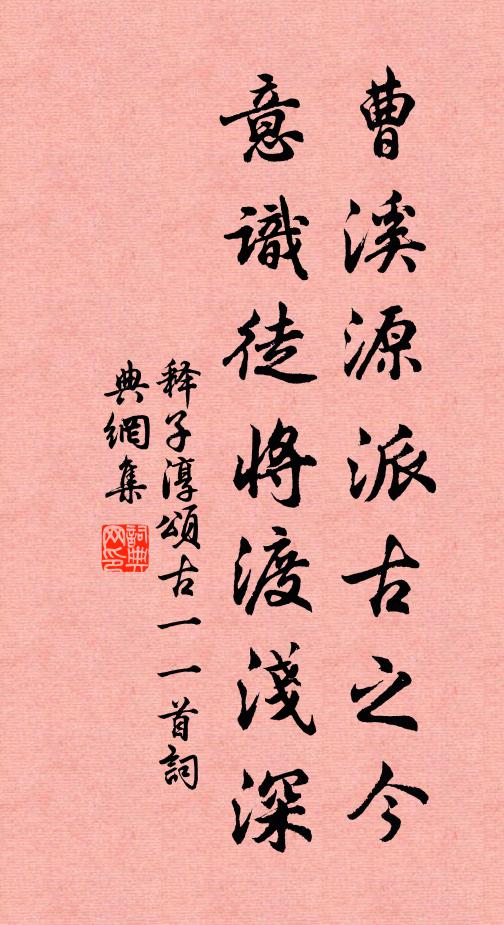 曹溪源派古之今
意識徒将渡淺深
释子淳頌古一一首詞
典網集
詞典
网印